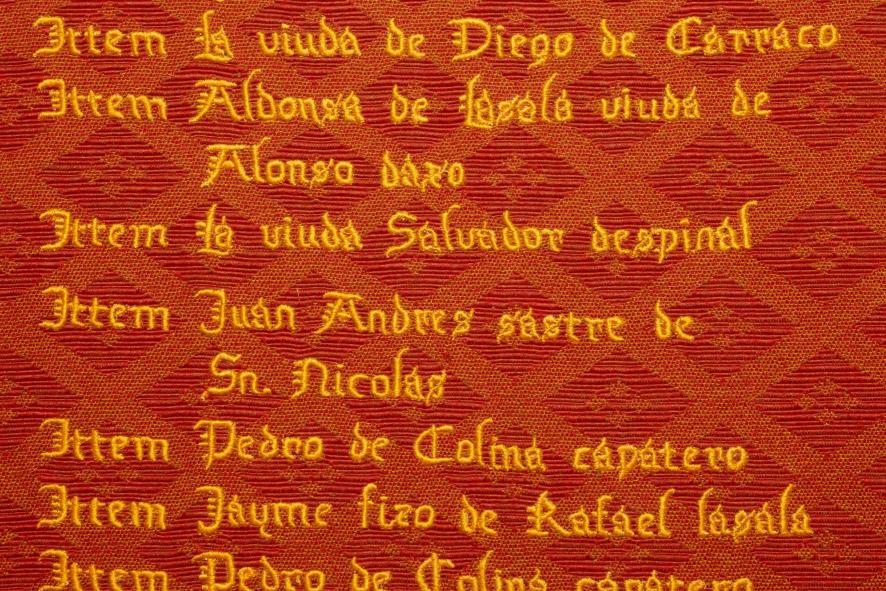 Ittem La viuda de Diego de Carraco
Ittem Aldonsa de Lasala viuda de
Alonso daxo
Ittem La viuda Salvador despinal
Ittem Juan Andres sastre de
Sn. Nicolas
Ittem Pedro de Colina capatero
Ittem Jayme fizo de Rafael lasala
Ittem Pedro de Colina capatero